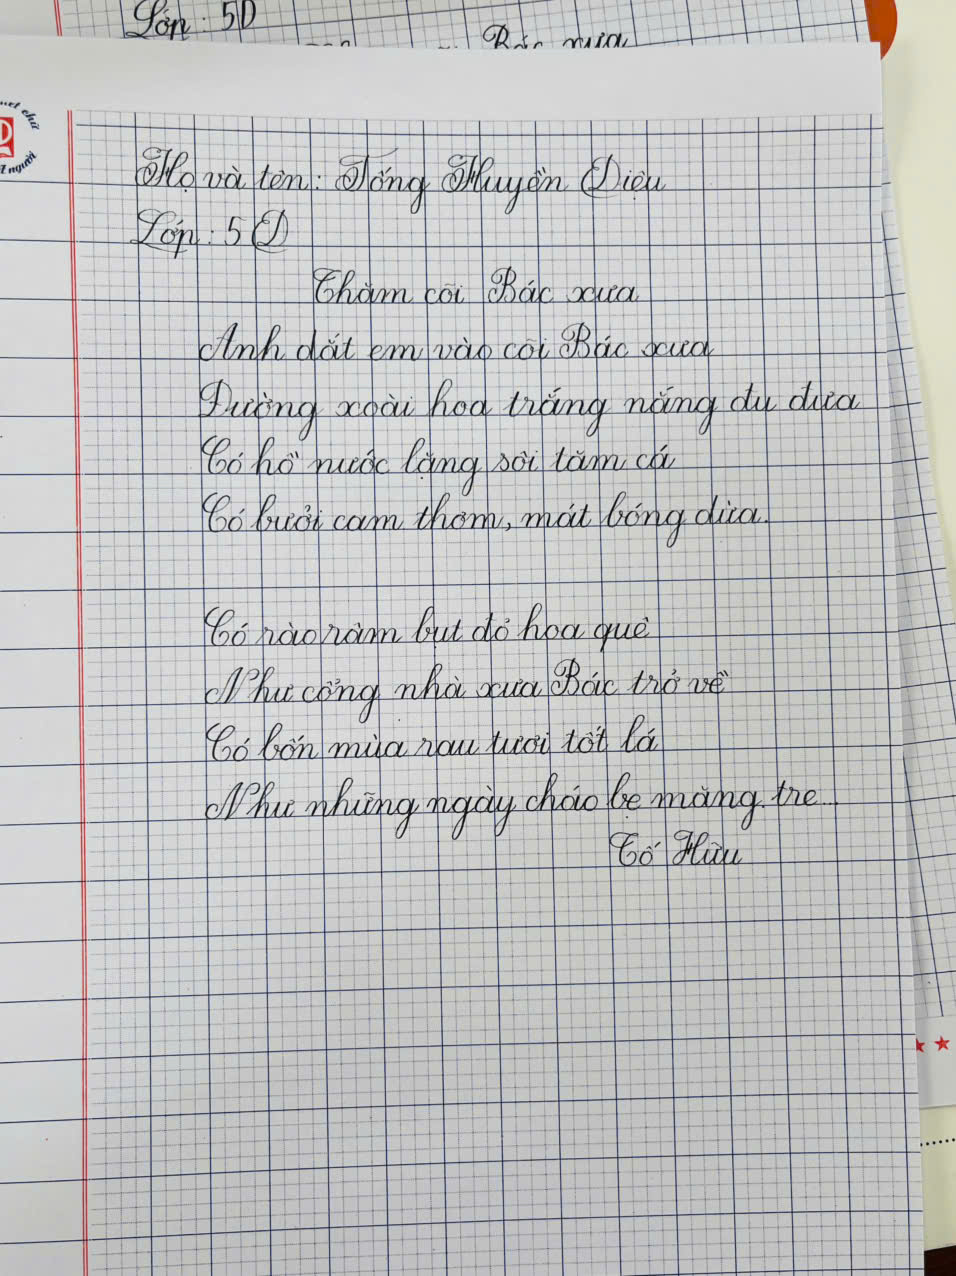 Lớp: 5D
Bác xưa
nét chữ
nết người
Họ và tên: Tống Huyền Diệu
Lớp: 5D
Thăm cõi Bác xưa
Anh dắt em vào cõi Bác xưa
Đường xoài hoa trắng nắng đu đưa
Có hồ nước lặng sôi tăm cá
Có bưởi cam thơm, mát bóng dừa.
Có rào râm bụt đỏ hoa quê
Như cổng nhà xưa Bác trở về
Có bốn mùa rau tươi tốt lá
Như những ngày cháo bẹ măng tre...
Tố Hữu